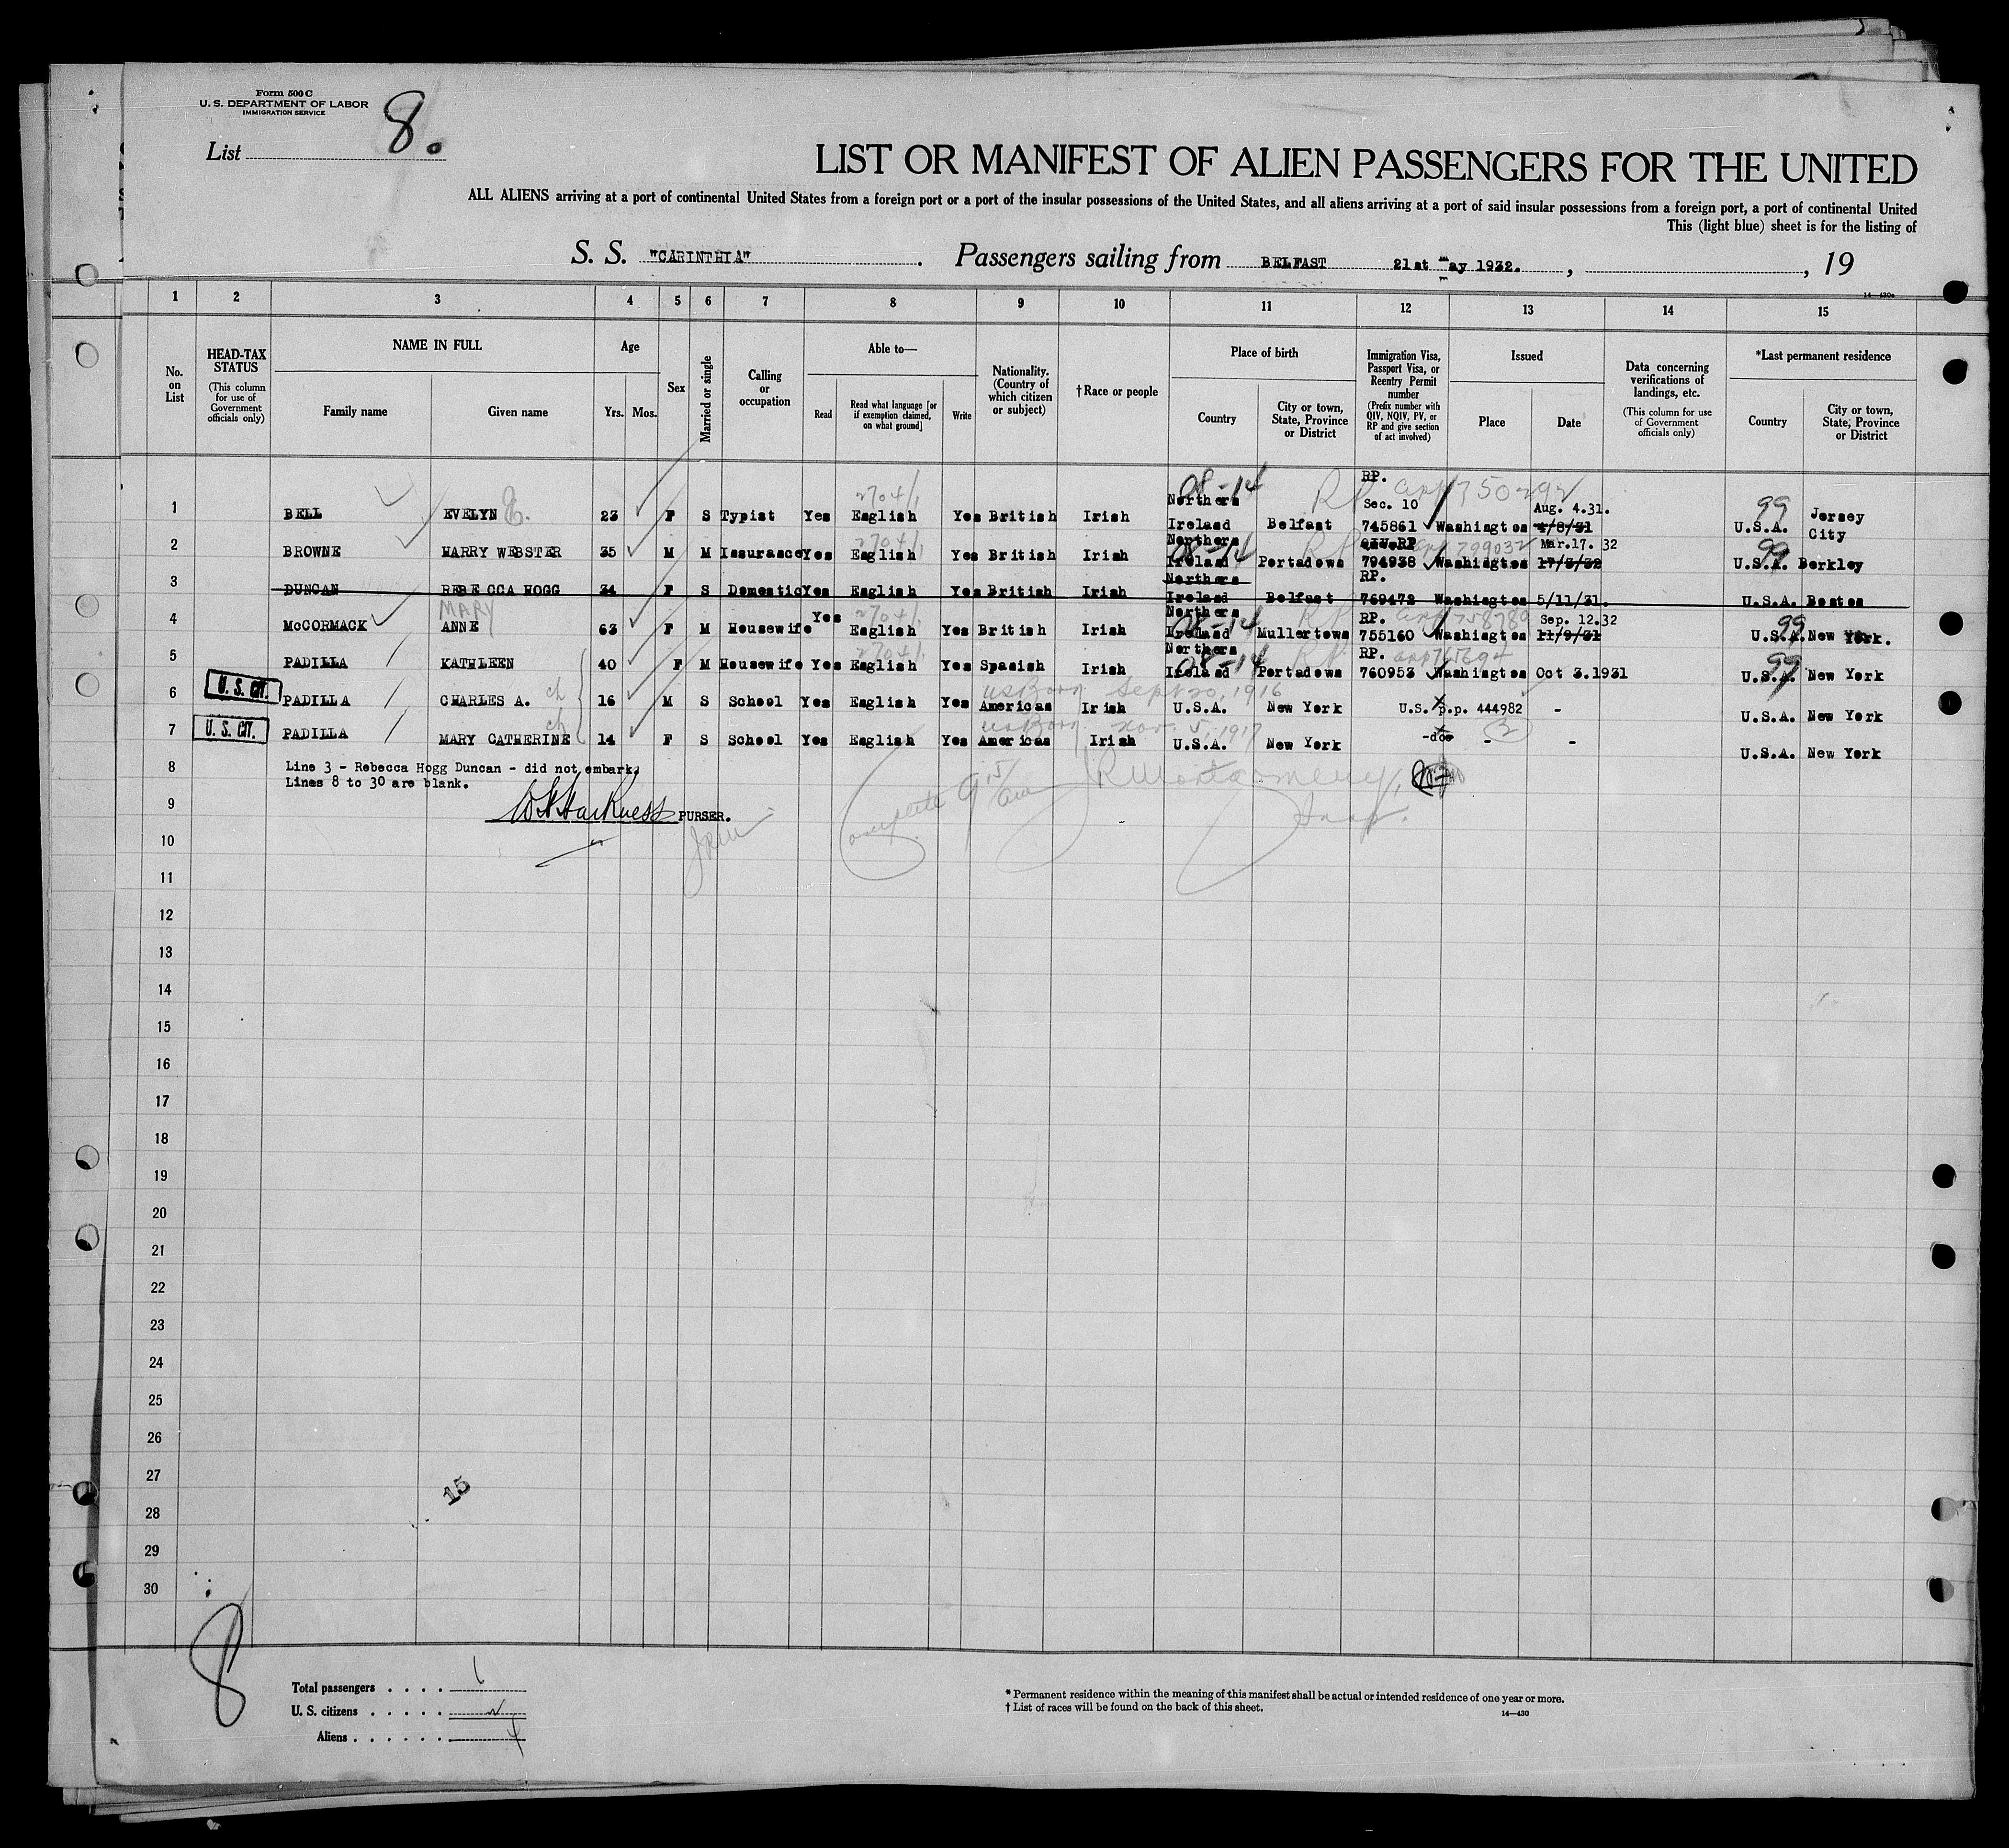 Form 500 C
U. S. DEPARTMENT OF LABOR
IMMIGRATION SERVICE
List 8.
LIST OR MANIFEST OF ALIEN PASSENGERS FOR THE UNITED
ALL ALIENS arriving at a port of continental United States from a foreign port or a port of the insular possessions of the United States, and all aliens arriving at a port of said insular possessions from a foreign port, a port of continental United
This (light blue) sheet is for the listing of
S. S. "CARINTHIA" . Passengers sailing from BELFAST 21st May 1932. , , 19
14—430a
1 2 3 4 5 6 7 8 9 10 11 12 13 14 15
No. on List
HEAD-TAX STATUS (This column for use of Government officials only)
NAME IN FULL
Family name Given name
Age
Yrs. Mos.
Sex
Married or single
Calling or occupation
Able to—
Read Read what language [or if exemption claimed, on what ground] Write
Nationality. (Country of which citizen or subject)
† Race or people
Place of birth
Country City or town, State, Province or District
Immigration Visa, Passport Visa, or Reentry Permit number (Prefix number with QIV, NQIV, PV, or RP and give section of act involved)
Issued
Place Date
Data concerning verifications of landings, etc. (This column for use of Government officials only)
*Last permanent residence
Country City or town, State, Province or District
2704/1 08-14 RP app 750292
1 BELL EVELYN E. 23 F S Typist Yes English Yes British Irish Northern Ireland Belfast RP. Sec. 10 745861 Washington Aug. 4.31. 4/8/31 99 U.S.A. Jersey City
2704/1 08-14 RP app 799032
2 BROWNE HARRY WEBSTER 35 M M Insurance Yes English Yes British Irish Northern Ireland Portadown QIV.RP 794938 Washington Mar.17. 32 17/3/32 99 U.S.A. Berkley
3 DUNCAN REBECCA HOGG 34 F S Domestic Yes English Yes British Irish Northern Ireland Belfast RP. 769472 Washington 5/11/31. U.S.A. Boston
MARY 2704/1 08-14 RP app 758789
4 McCORMACK ANNE 63 F M Housewife Yes English Yes British Irish Northern Ireland Mullertown RP. 755160 Washington Sep. 12.32 11/9/31 99 U.S.A. New York.
2704/1 08-14 RP app 765694
5 PADILLA KATHLEEN 40 F M Housewife Yes English Yes Spanish Irish Northern Ireland Portadown RP. 760953 Washington Oct 3.1931 99 U.S.A. New York
US Born Sept 20, 1916
6 U. S. CIT. PADILLA CHARLES A. ch 16 M S School Yes English Yes American Irish U.S.A. New York U.S. p.p. 444982 - U.S.A. New York
US Born Nov. 5, 1917
7 U. S. CIT. PADILLA MARY CATHERINE ch 14 F S School Yes English Yes American Irish U.S.A. New York -do- - 3 - U.S.A. New York
8 Line 3 - Rebecca Hogg Duncan - did not embark.
Lines 8 to 30 are blank.
Complete JR Montgomery, Insp.
9 W Harkness PURSER.
JRM
10
11
12
13
14
15
16
17
18
19
20
21
22
23
24
25
26
27
15
28
29
30
8
Total passengers . . . .
U. S. citizens . . . . . 2
Aliens . . . . . . 4
* Permanent residence within the meaning of this manifest shall be actual or intended residence of one year or more.
† List of races will be found on the back of this sheet.
14—430